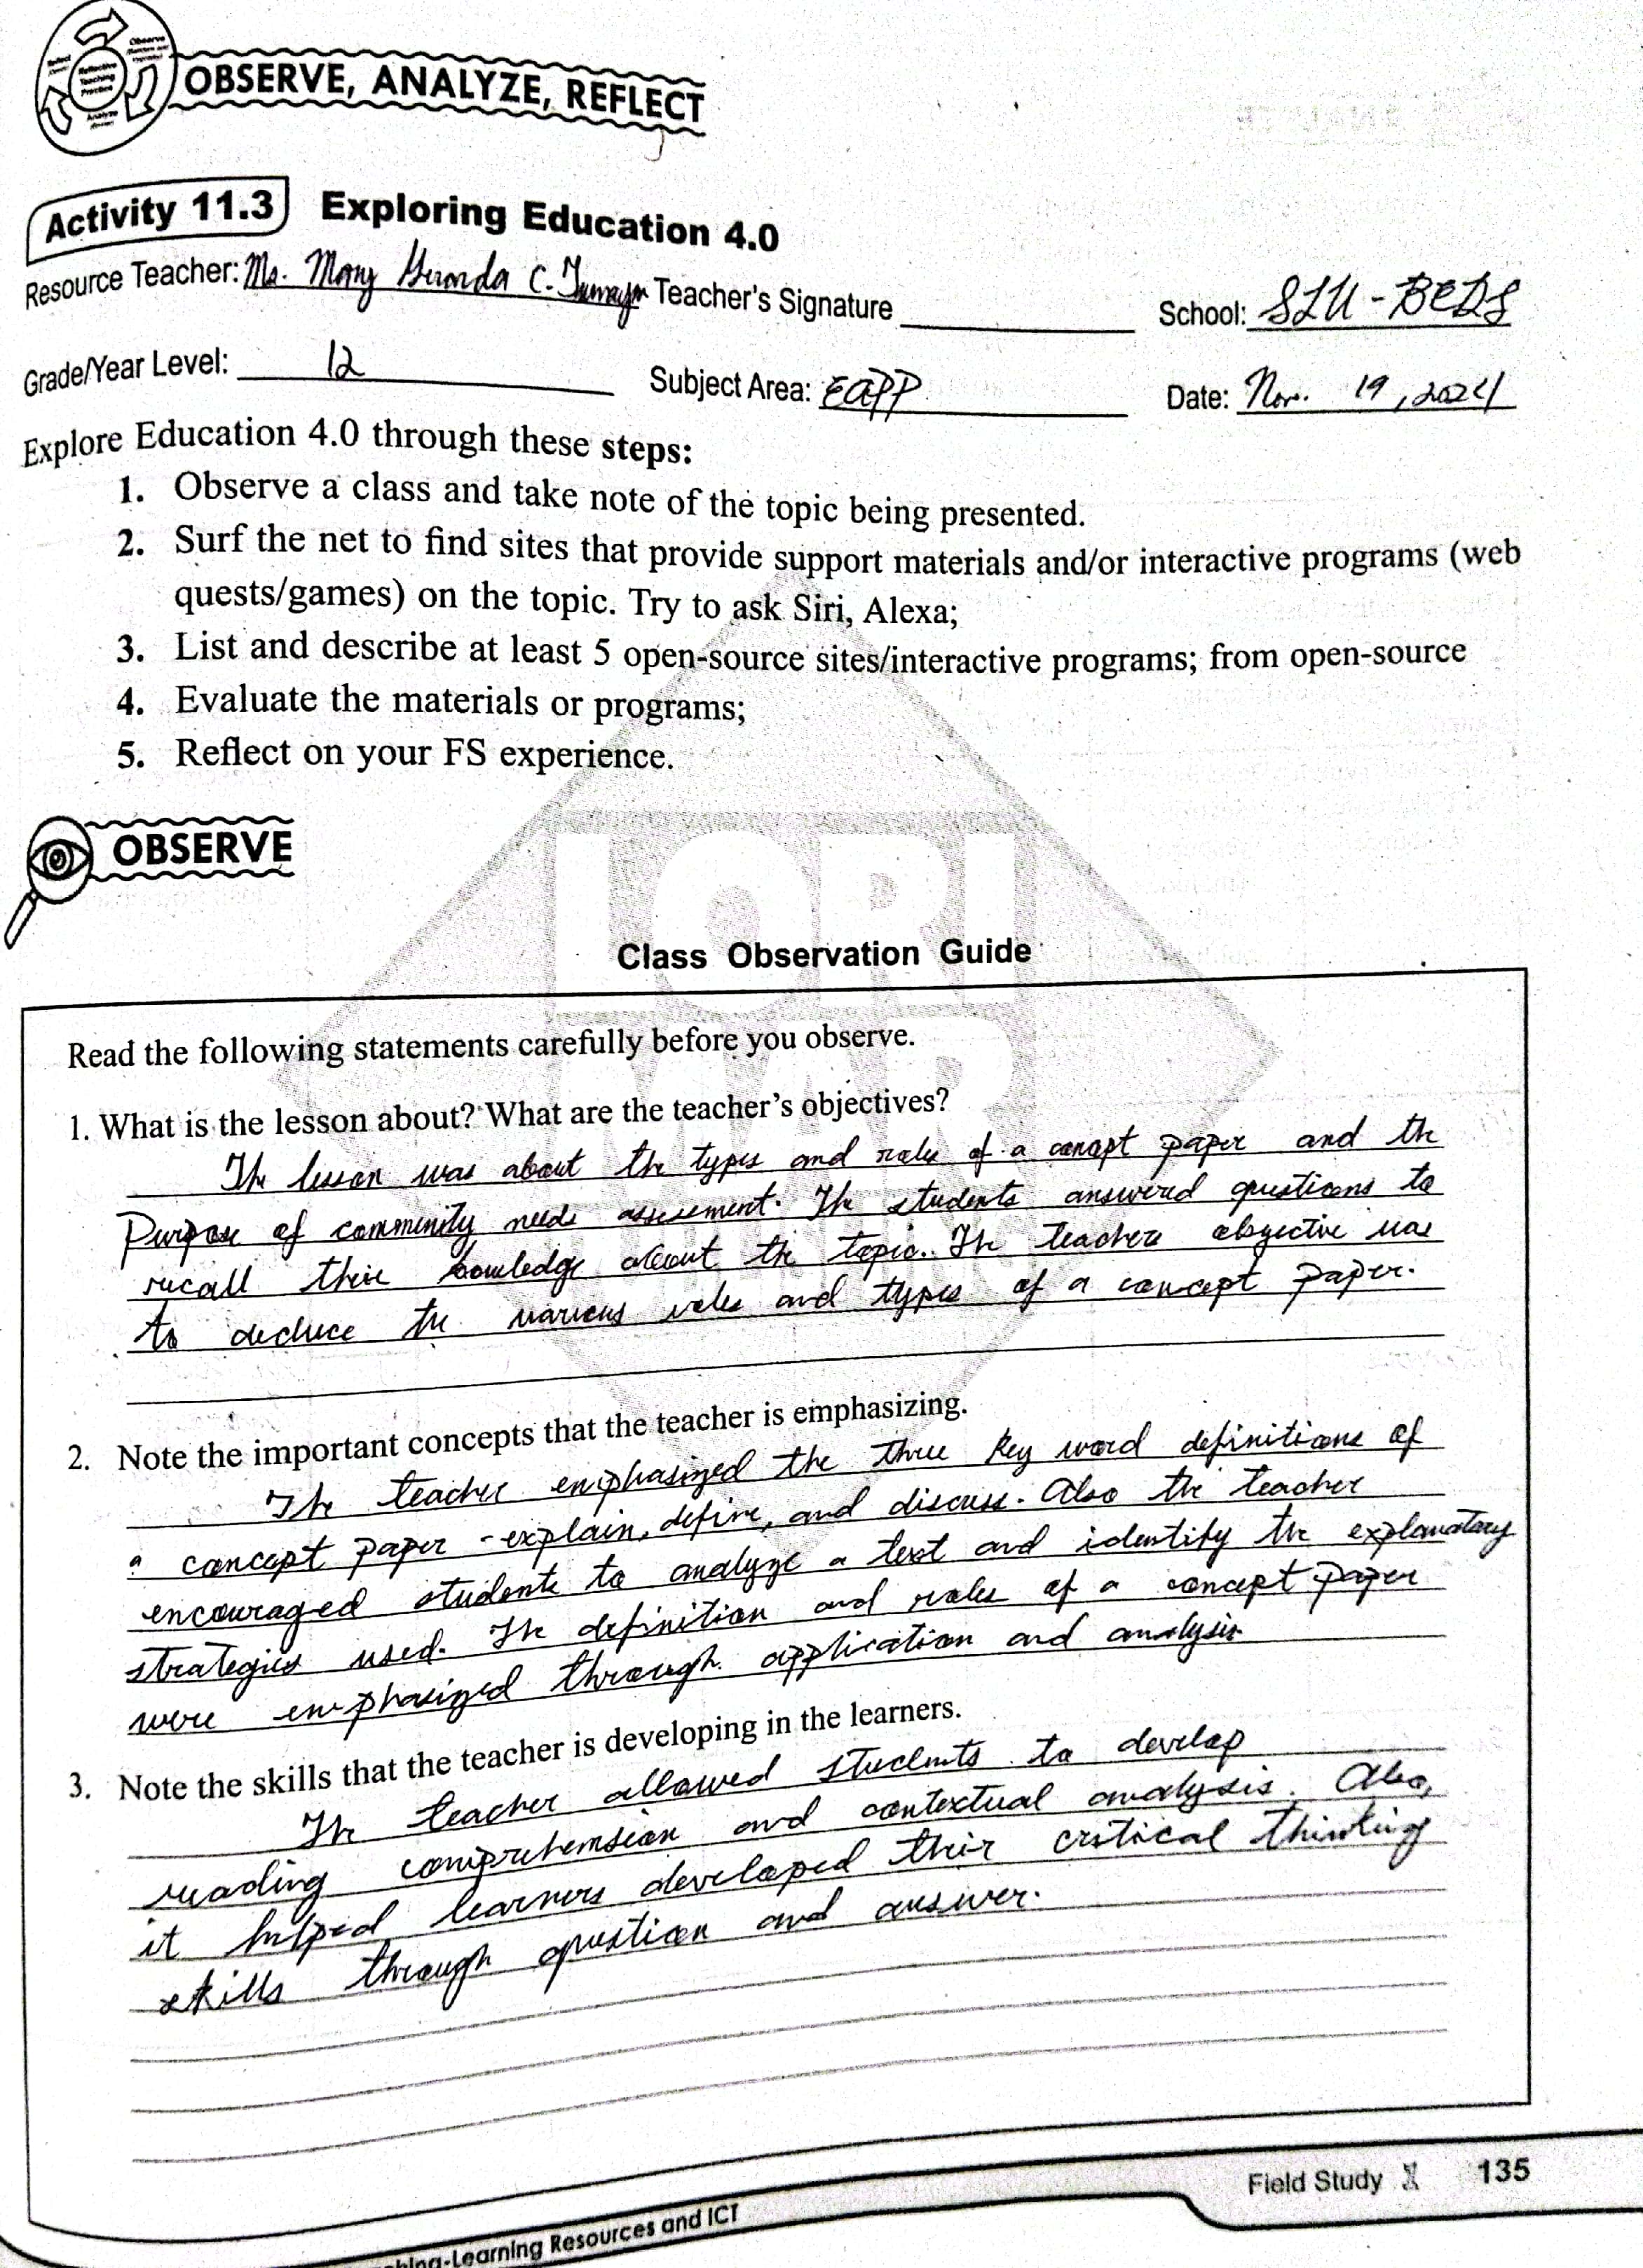 Reflect
Observe
Reflective
Teaching
Practice
Analyze
OBSERVE, ANALYZE, REFLECT
Activity 11.3 Exploring Education 4.0
Resource Teacher: Ms. Mary C. Teacher's Signature School: SLU - BEDS
Grade/Year Level: 12 Subject Area: EAPP Date: Nov. 19, 2024
Explore Education 4.0 through these steps:
1. Observe a class and take note of the topic being presented.
2. Surf the net to find sites that provide support materials and/or interactive programs (web
quests/games) on the topic. Try to ask Siri, Alexa;
3. List and describe at least 5 open-source sites/interactive programs; from open-source
4. Evaluate the materials or programs;
5. Reflect on your FS experience.
OBSERVE
LORI
MAR
Class Observation Guide
Read the following statements carefully before you observe.
1. What is the lesson about? What are the teacher's objectives?
The lesson was about the types and roles of a concept paper and the
Purpose of community needs assessment. The students answered questions to
recall their knowledge about the topic. The teachers objective was
to deduce the various roles and types of a concept paper.
2. Note the important concepts that the teacher is emphasizing.
The teacher emphasized the three key word definitions of
a concept paper - explain, define, and discuss. Also the teacher
encouraged students to analyze a text and identify the explanatory
strategies used. The definition and roles of a concept paper
were emphasized through application and analysis
3. Note the skills that the teacher is developing in the learners.
The teacher allowed students to develop
reading comprehension and contextual analysis. Also,
it helped learners developed their critical thinking
skills through question and answer.
Field Study 135
Learning Resources and ICT